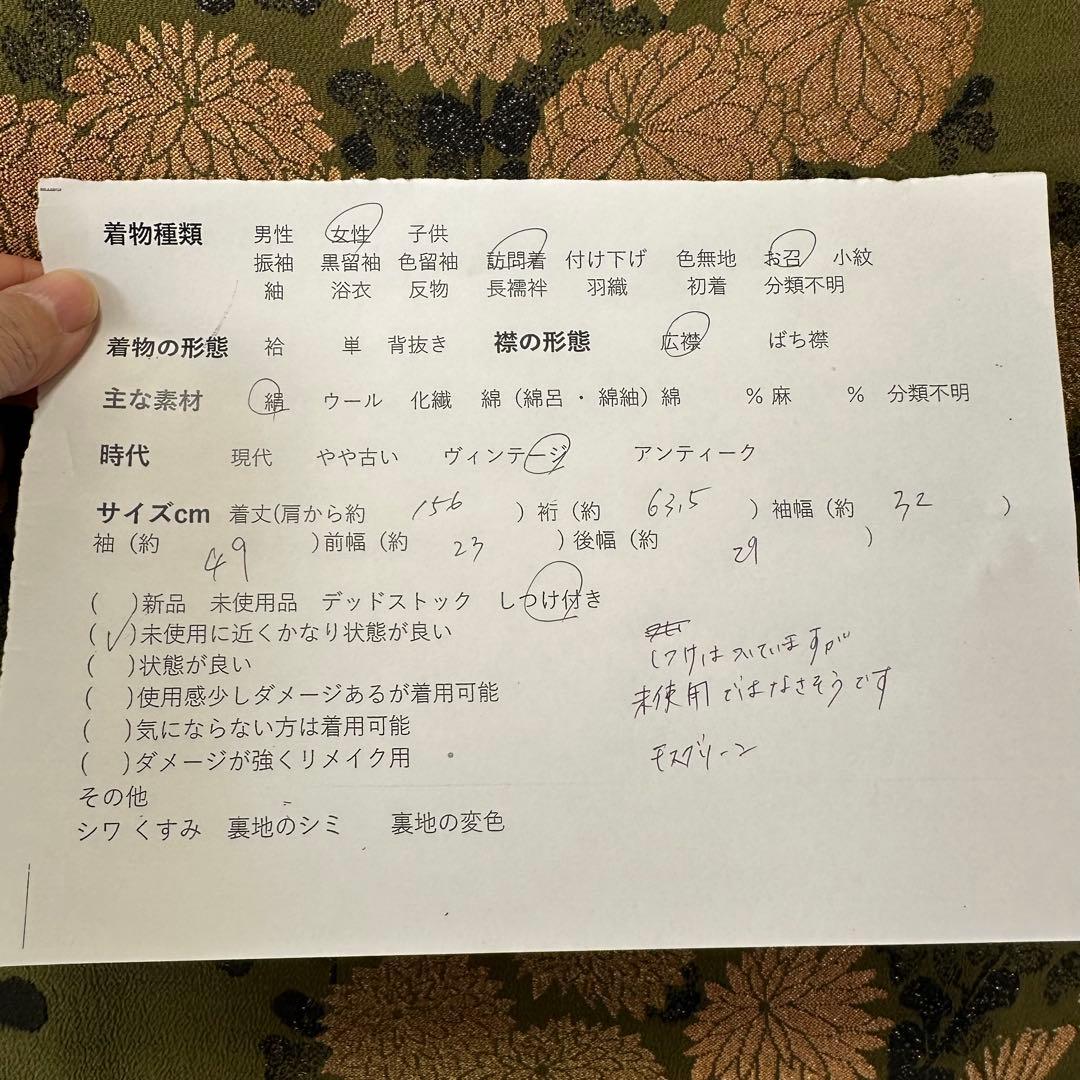 着物種類 男性 女性 子供
振袖 黒留袖 色留袖 訪問着 付け下げ 色無地 お召 小紋
紬 浴衣 反物 長襦袢 羽織 初着 分類不明
着物の形態 袷 単 背抜き 襟の形態 広襟 ばち襟
主な素材 絹 ウール 化繊 綿（綿呂・綿紬）綿 %麻 % 分類不明
時代 現代 やや古い ヴィンテージ アンティーク
サイズcm 着丈(肩から約 156 ) 裄 (約 63,5 ) 袖幅 (約 32 )
袖 (約 49 )前幅 (約 23 )後幅 (約 29 )
( )新品 未使用品 デッドストック しつけ付き
(✓)未使用に近くかなり状態が良い
( )状態が良い
( )使用感少しダメージあるが着用可能
( )気にならない方は着用可能
( )ダメージが強くリメイク用
しつけはついていますが
未使用ではなさそうです
モスグリーン
その他
シワ くすみ 裏地のシミ 裏地の変色